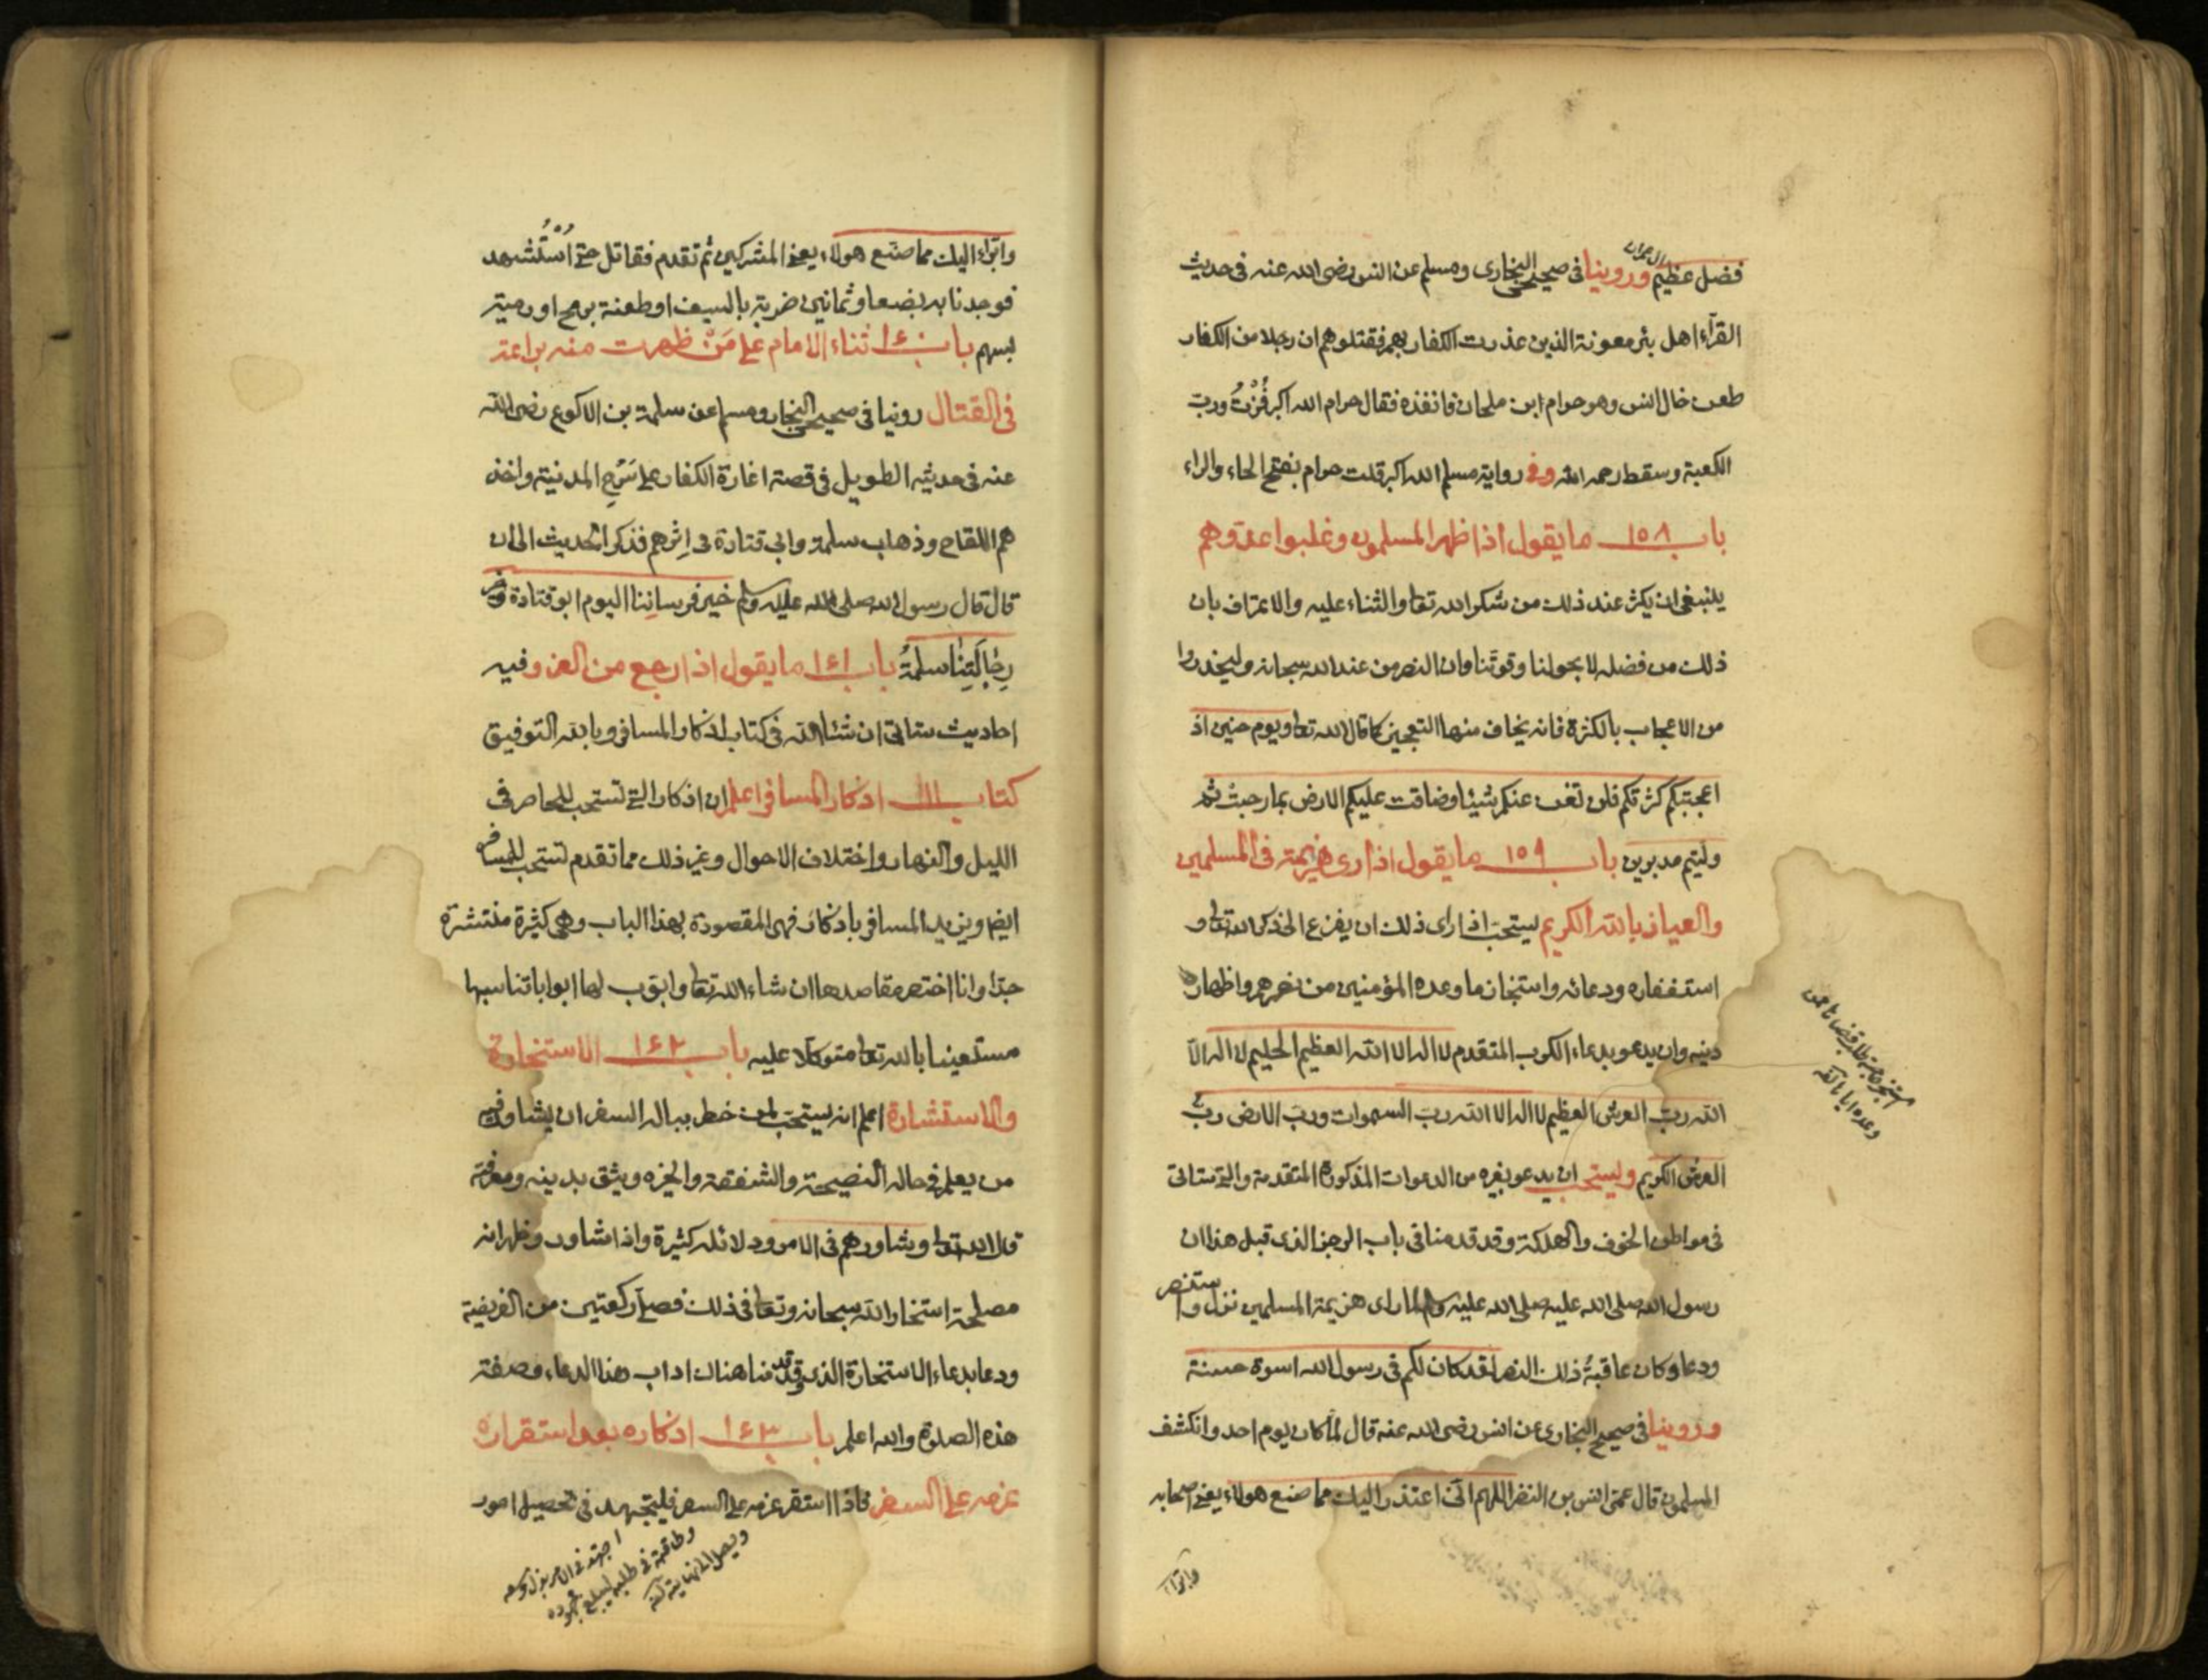 فضل عظيم وروينا فى صحيحى البخارى ومسلم عن انس رضى الله عنه فى حديث
القرّآء اهل بئر معونة الذين غدرت الكفار بهم فقتلوهم ان رجلا من الكفار
طعن خال انس وهو حرام ابن ملحان فانفذه فقال حرام الله اكبر فُزْتُ وربّ
الكعبة وسقط رحمه الله وفى رواية مسلم الله اكبر قلت حرام بفتح الحاء والراء
باب ١٥٨ ما يقول اذا ظهر المسلمون وغلبوا عدوهم
ينبغى ان يكثر عند ذلك من شكر الله تعا والثناء عليه والاعتراف بان
ذلك من فضله لا بحولنا وقوتنا وان النصر من عند الله سبحانه وليحذروا
من الاعجاب بالكثرة فانه يخاف منها التعجيز كما قال الله تعا ويوم حنين اذ
اعجبتكم كثرتكم فلن تغن عنكم شيئا وضاقت عليكم الارض بما رحبت ثم
وليتم مدبرين باب ١٥٩ ما يقول اذا رى هزيمة فى المسلمين
والعياذ بالله الكريم يستحب اذا راى ذلك ان يفزع الى ذكر الله تعا و
استغفاره ودعائه واستنجاز ما وعده المؤمنين من نصرهم واظهار
دينه وان يدعو بدعاء الكرب المتقدم لا اله الا الله العظيم الحليم لا اله الا
الله ربّ العرش العظيم لا اله الا الله ربّ السموات وربّ الارض ربّ
العرش الكريم ويستحب ان يدعو بغيره من الدعوات المذكورة المتقدمة والتى ستاتى
فى مواطن الخوف والهلكة وقد قدمنا فى باب الرجز الذى قبل هذا ان
رسول الله صلى الله عليه صلى الله عليه وسلم لما راى هزيمة المسلمين نزل واستنصر
ودعا وكان عاقبةُ ذلك النصر لقد كان لكم فى رسول الله اسوة حسنة
وروينا فى صحيح البخارى عن انس رضى الله عنه قال لما كان يوم احد وانكشف
المسلمون قال عمى انس بن النضر اللهم انّى اعتذر اليك مما صنع هولاء يعنى اصحابه
وابراء
وابرّاء اليك مما صنع هولاء يعنى المشركين ثم تقدم فقاتل حتى اُسْتُشهد
فوجدنا به بضعا وثمانين ضربة بالسيف او طعنة برمح او رمية
بسهم باب ١٦٠ ثناء الامام على مَنْ ظهرت منه براعة
فى القتال روينا فى صحيحى البخار ومسلم عن سلمة بن الاكوع رضى الله
عنه فى حديثه الطويل فى قصة اغارة الكفار على سَرْح المدينة واخذ
هم اللقاح وذهاب سلمة وابى قتادة فى اِثرهم فذكر الحديث الى ان
قال قال رسول الله صلى الله عليه وسلم خير فرساننا اليوم ابو قتادة وخير
رجّالتنا سلمةُ باب ١٦١ ما يقول اذا رجع من الغزو وفيه
احاديث ستاتى ان شاء الله فى كتاب اذكار المسافر وبالله التوفيق
كتاب اذكار المسافر اعلم ان اذكار التى تستحب للحاضر فى
الليل والنهار واختلاف الاحوال وغير ذلك مما تقدم تستحب للمسافر
ايضا ويزيد المسافر باذكار فهى المقصودة بهذا الباب وهى كثيرة منتشرة
جدّا وانا اختصر مقاصدها ان شاء الله تعا وابوّب لها ابوابا تناسبها
مستعينا بالله تعا متوكلا عليه باب ١٦٢ الاستخارة
والاستشارة اعلم انه يستحبّ لمن خطر بباله السفر ان يشاور فيه
من يعلم فى حاله النصيحة والشفقة والخبرة ويثق بدينه ومعرفته
قال الله تعا وشاورهم فى الامر ودلائله كثيرة واذا شاور وظهر انه
مصلحة استخار الله سبحانه وتعا فى ذلك فصلّى ركعتين من الفريضة
ودعا بدعاء الاستخارة الذى وقد قدمنا هناك اداب هذا الدعاء وصفته
هذه الصلوة والله اعلم باب ١٦٣ اذكاره بعد استقرار
عزمه على السفر فاذا استقر عزمه على السفر فليجتهد فى تحصيل امور
اجتهد فى الامر بذل وسعه
وطاقته فى طلبه ليبلغ مجهوده
ويصل الى نهايته